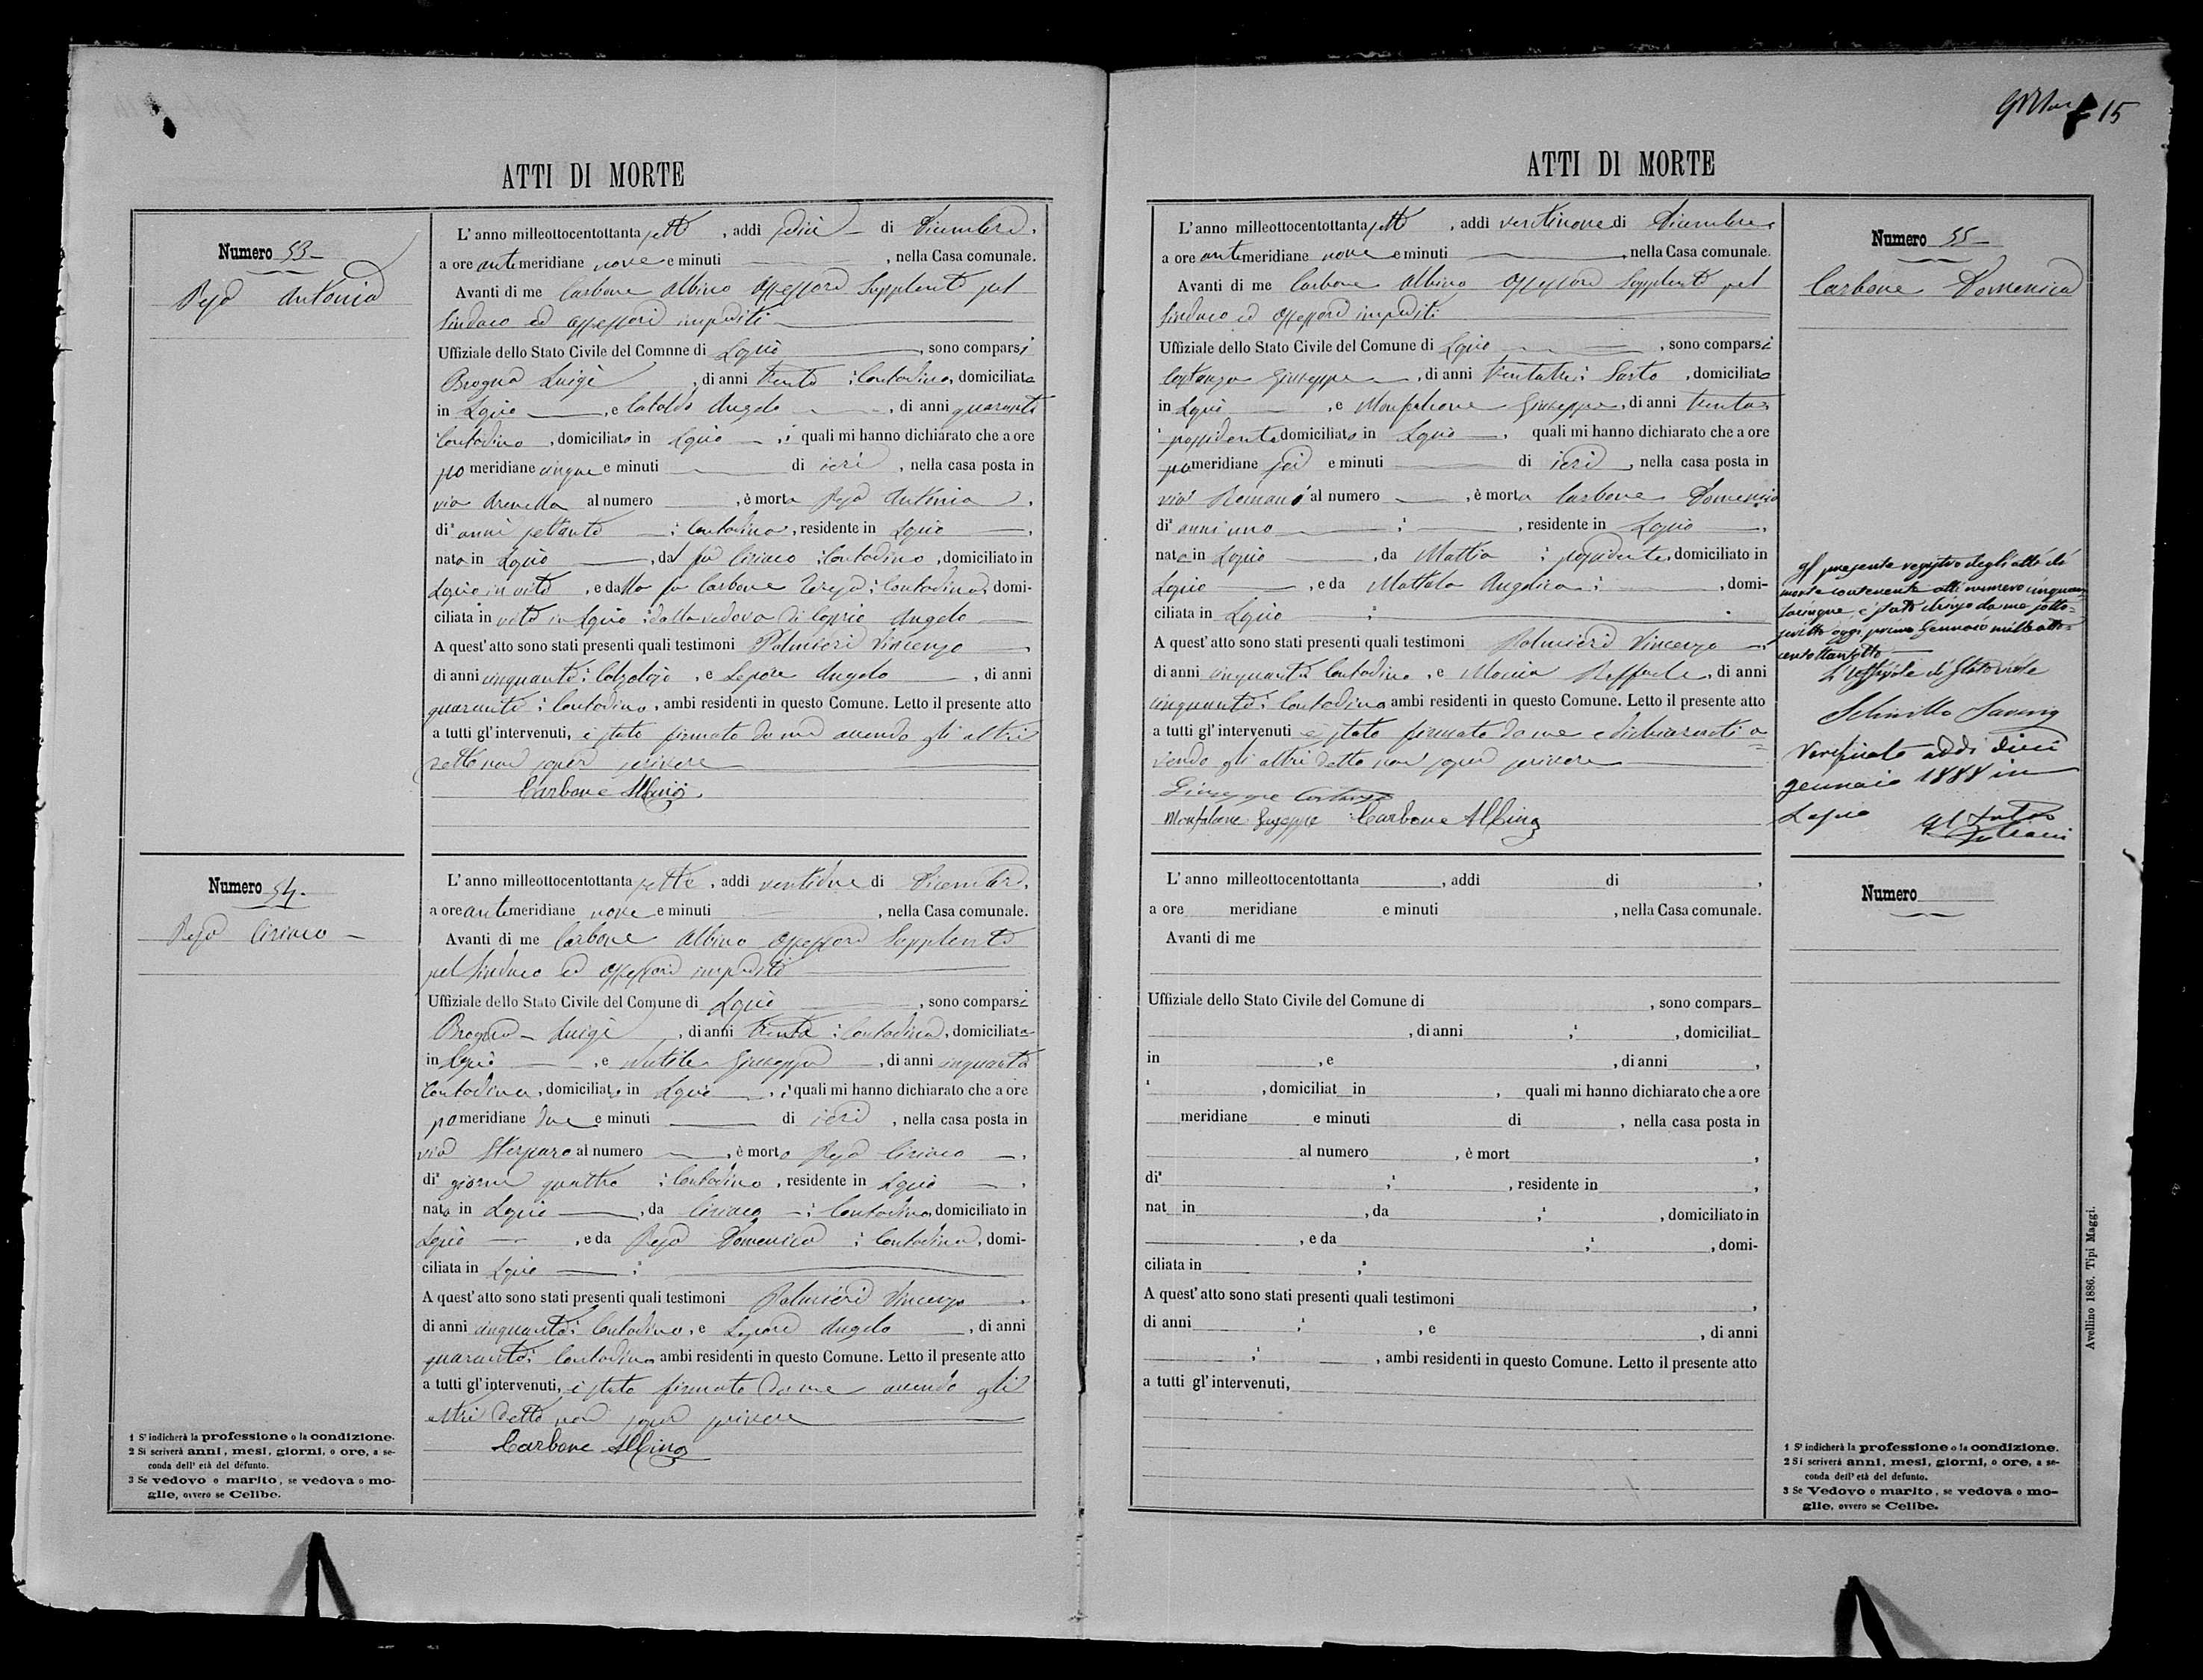 15
ATTI DI MORTE
Numero 53
Antonia
L'anno milleottocentottantasette, addì sedici di Dicembre,
a ore antimeridiane nove e minuti , nella Casa comunale.
Avanti di me Carbone Albino Assessore Supplente pel
Sindaco ed Assessori impediti
Uffiziale dello Stato Civile del Comnne di Lapio, sono comparsi
Brogna Luigi, di anni trenta; Contadino, domiciliato
in Lapio, e Cataldo Angelo, di anni quaranta
Contadino, domiciliato in Lapio, i quali mi hanno dichiarato che a ore
pomeridiane cinque e minuti di ieri, nella casa posta in
via Arenella al numero , è morta Antonia,
di² anni settanta; Contadina, residente in Lapio,
nata in Lapio, dal fu Ciriaco; Contadino, domiciliato in
Lapio in vita, e dalla fu Carbone Teresa; Contadina, domi-
ciliata in vita in Lapio; dalla vedova di Angelo
A quest'atto sono stati presenti quali testimoni Palmieri Vincenzo,
di anni cinquanta; Calzolajo, e Lepore Angelo, di anni
quaranta; Contadino, ambi residenti in questo Comune. Letto il presente atto
a tutti gl'intervenuti, è stato firmato da me avendo gli altri
detto non saper scrivere
Carbone Albino
Numero 54
Ciriaco
L'anno milleottocentottantasette, addì ventidue di Dicembre,
a ore antimeridiane nove e minuti , nella Casa comunale.
Avanti di me Carbone Albino Assessore Supplente
pel Sindaco ed Assessori impediti
Uffiziale dello Stato Civile del Comune di Lapio, sono comparsi
Brogna Luigi, di anni trenta; Contadino, domiciliato
in Lapio, e Giuseppe, di anni cinquanta
Contadino, domiciliato in Lapio, i quali mi hanno dichiarato che a ore
pomeridiane due e minuti di ieri, nella casa posta in
via Sterparo al numero , è morto Ciriaco,
di² giorni quattro; Contadino, residente in Lapio,
nato in Lapio, da Ciriaco; Contadino, domiciliato in
Lapio, e da Domenica; Contadina, domi-
ciliata in Lapio;
A quest'atto sono stati presenti quali testimoni Palmieri Vincenzo,
di anni cinquanta; Contadino, e Lepore Angelo, di anni
quaranta; Contadino, ambi residenti in questo Comune. Letto il presente atto
a tutti gl'intervenuti, è stato firmato da me avendo gli
altri detto non saper scrivere
Carbone Albino
1 S'indicherà la professione o la condizione.
2 Si scriverà anni, mesi, giorni, o ore, a se-
conda dell'età del defunto.
3 Se vedovo o marito, se vedova o mo-
glie, ovvero se Celibe.
ATTI DI MORTE
Numero 55
Carbone Domenica
L'anno milleottocentottantasette, addì ventinove di Dicembre,
a ore antimeridiane nove e minuti , nella Casa comunale.
Avanti di me Carbone Albino Assessore Supplente pel
Sindaco ed Assessori impediti
Uffiziale dello Stato Civile del Comune di Lapio, sono comparsi
Costanzo Giuseppe, di anni trentatre; Sarto, domiciliato
in Lapio, e Monfalcone Giuseppe, di anni trenta,
possidente domiciliato in Lapio, quali mi hanno dichiarato che a ore
pomeridiane sei e minuti di ieri, nella casa posta in
via Romano al numero , è morta Carbone Domenica
di² anni uno; , residente in Lapio,
nata in Lapio, da Mattia; possidente, domiciliato in
Lapio, e da Angelica; , domi-
ciliata in Lapio;
A quest'atto sono stati presenti quali testimoni Palmieri Vincenzo,
di anni cinquanta; Contadino, e Raffaele, di anni
cinquanta; Contadino ambi residenti in questo Comune. Letto il presente atto
a tutti gl'intervenuti è stato firmato da me e dichiaranti a-
vendo gli altri detto non saper scrivere
Giuseppe Costanzo
Monfalcone Giuseppe Carbone Albino
Il presente registro degli atti di
morte contenente atti numero cinquan-
tacinque è stato chiuso da me sotto-
scritto oggi primo Gennaio mille otto-
centottantotto
L'Uffiziale di Stato civile
Verificato addì dieci
gennaio 1888 in
Lapio
Numero
L'anno milleottocentottanta , addì di ,
a ore meridiane e minuti , nella Casa comunale.
Avanti di me
Uffiziale dello Stato Civile del Comune di , sono compars
, di anni ; , domiciliat
in , e , di anni ,
; , domiciliat in , quali mi hanno dichiarato che a ore
meridiane e minuti di , nella casa posta in
al numero , è mort ,
di² ; , residente in ,
nat in , da ; , domiciliato in
, e da ; , domi-
ciliata in ;
A quest'atto sono stati presenti quali testimoni ,
di anni ; , e , di anni
; , ambi residenti in questo Comune. Letto il presente atto
a tutti gl'intervenuti,
1 S'indicherà la professione o la condizione.
2 Si scriverà anni, mesi, giorni, o ore, a se-
conda dell'età del defunto.
3 Se Vedovo o marito, se vedova o mo-
glie, ovvero se Celibe.
Avellino 1886. Tipi Maggi.